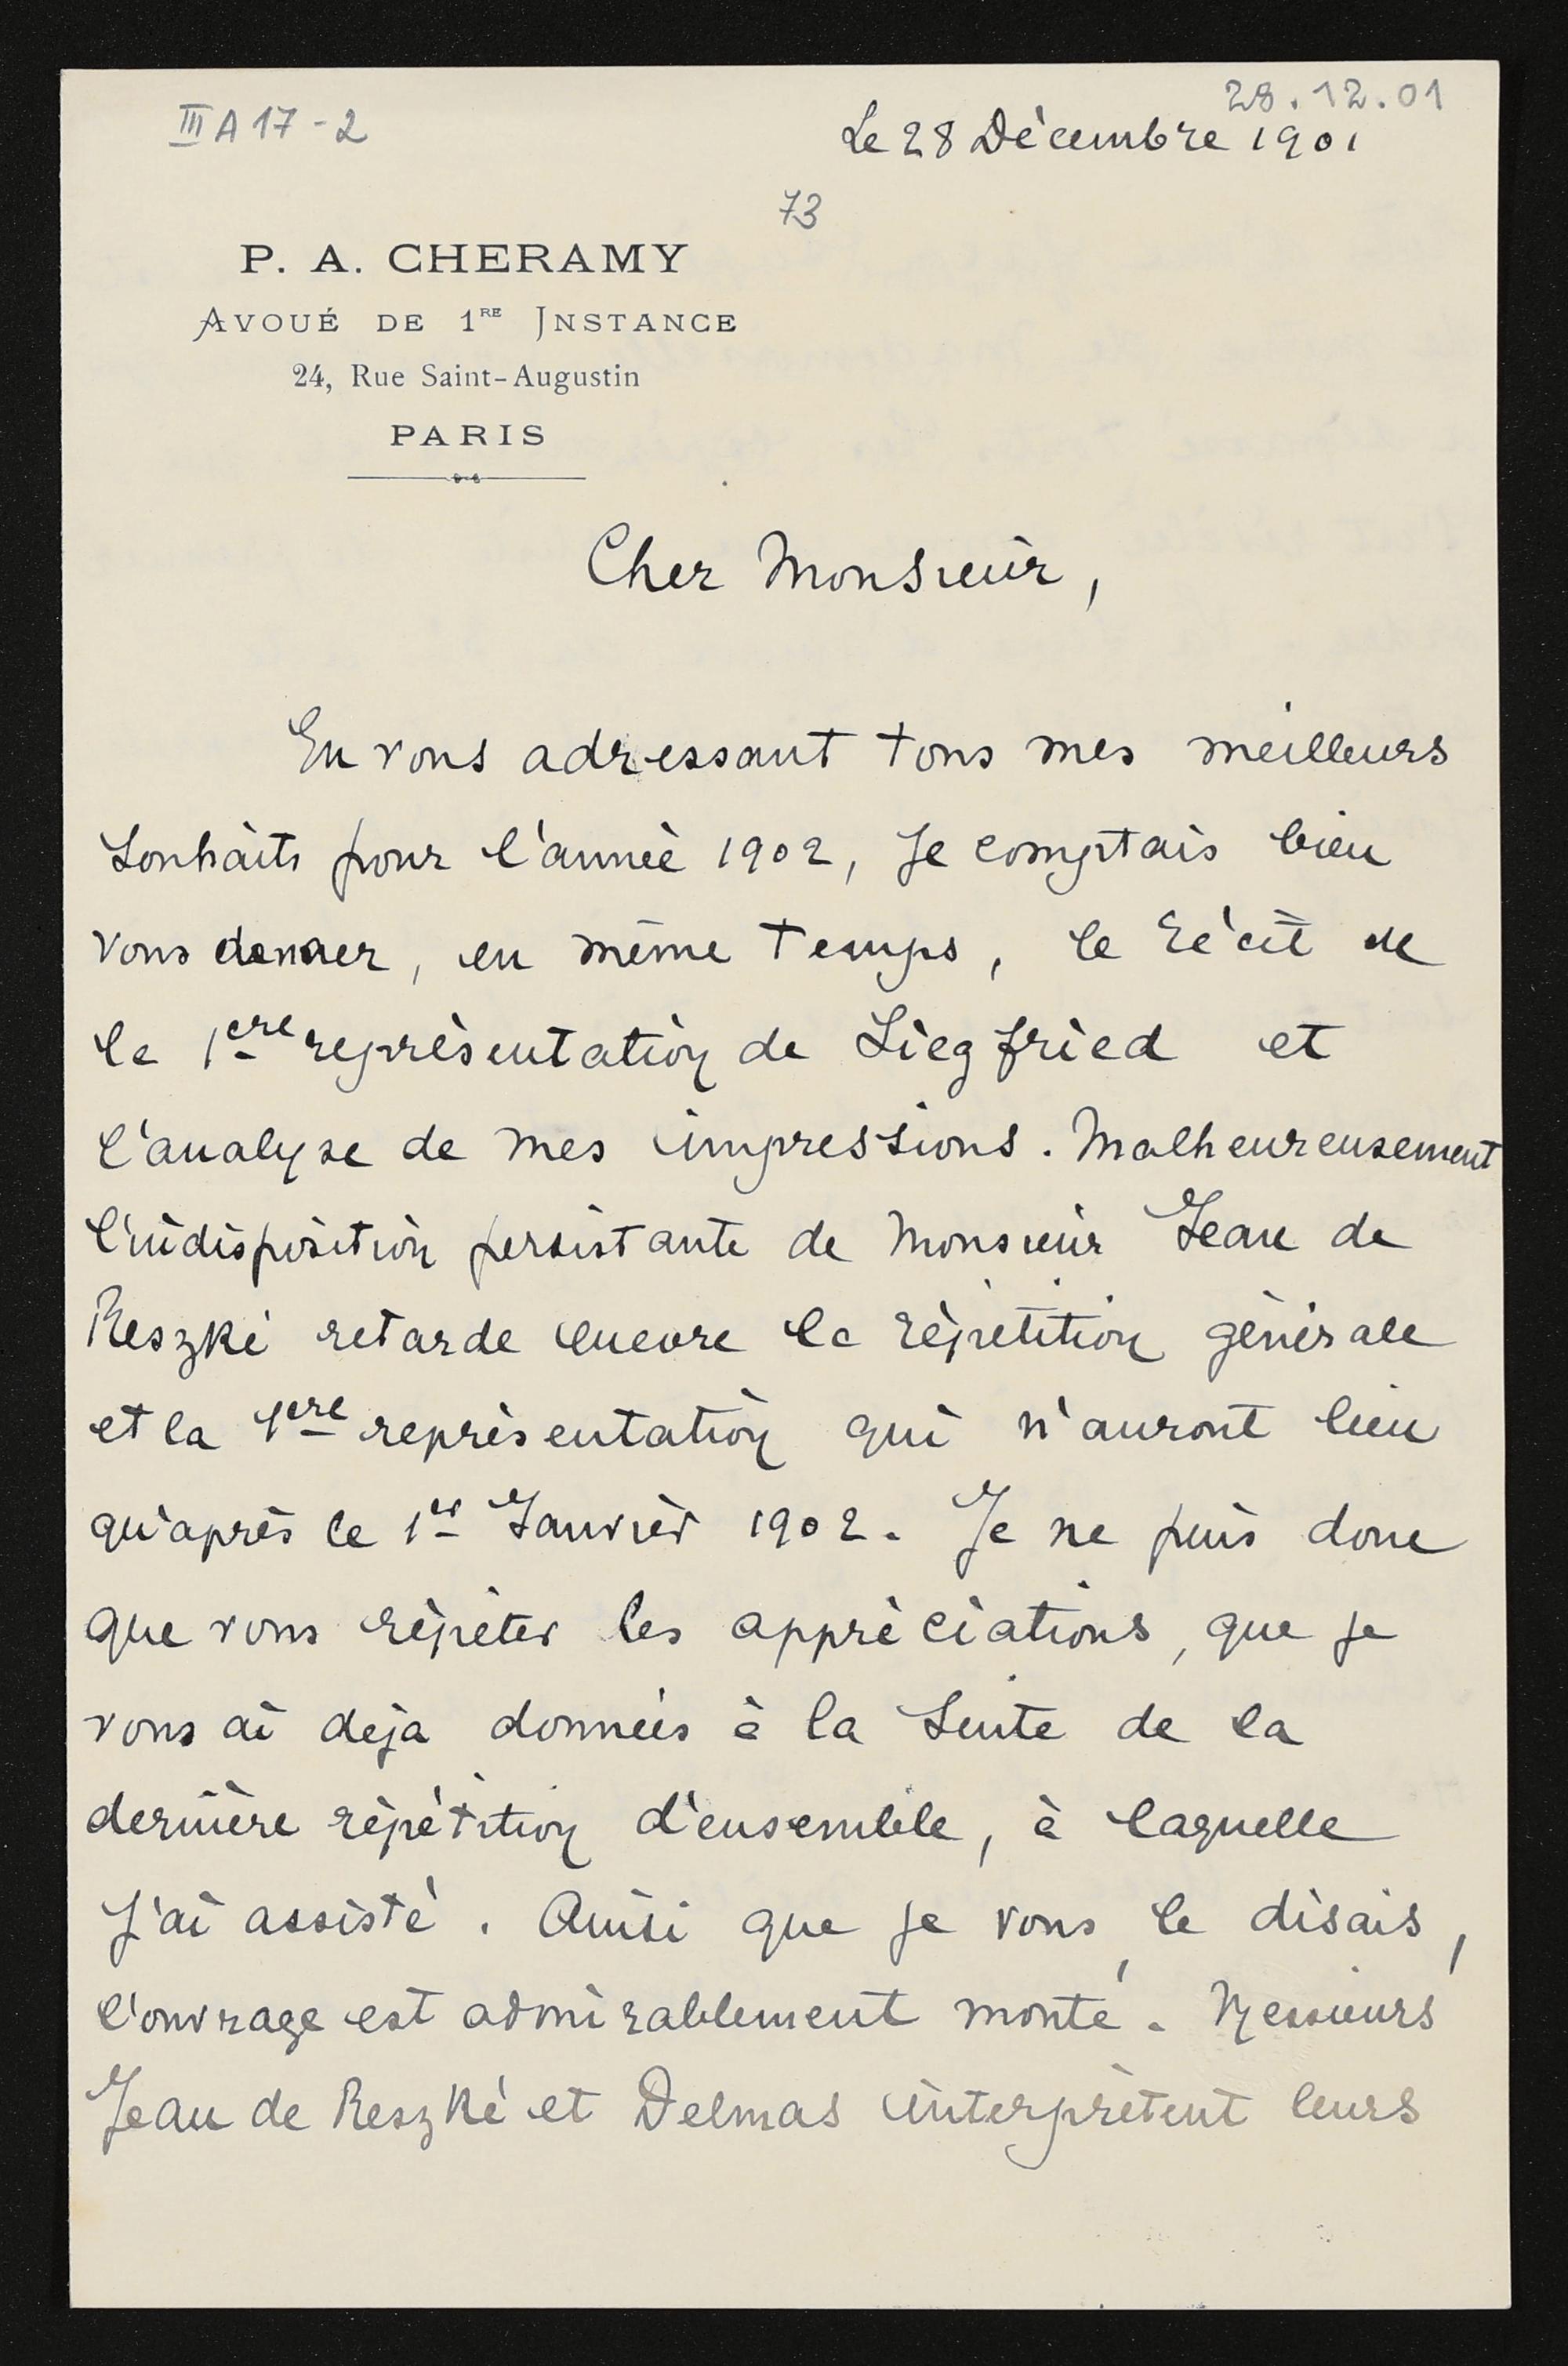 28.12.01
III A 17-2
Le 28 Décembre 1901
73
P. A. CHERAMY
AVOUÉ DE 1RE INSTANCE
24, Rue Saint-Augustin
PARIS
Cher Monsieur,
En vous adressant tous mes meilleurs
souhaits pour l'année 1902, je comptais bien
vous donner, en même temps, le récit de
la 1ere représentation de Siegfried et
l'analyse de mes impressions. Malheureusement
l'indisposition persistante de Monsieur Jean de
Reszké retarde encore la répétition générale
et la 1ere représentation qui n'auront lieu
qu'après le 1er Janvier 1902. Je ne puis donc
que vous répéter les appréciations, que je
vous ai deja données à la suite de la
dernière répétition d'ensemble, à laquelle
j'ai assisté. Ainsi que je vous le disais,
l'ouvrage est admirablement monté. Messieurs
Jean de Reszké et Delmas interprètent leurs